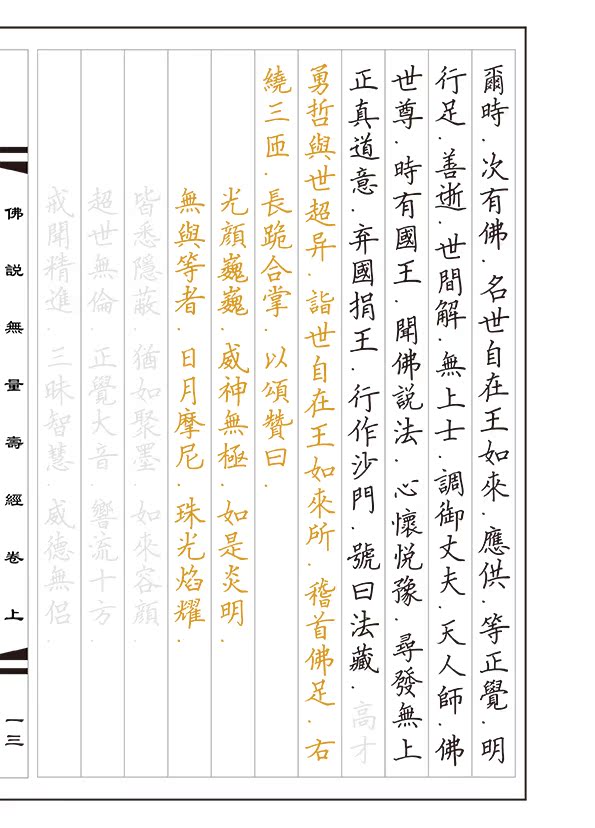 爾時．次有佛．名世自在王如來．應供．等正覺．明
行足．善逝．世間解．無上士．調御丈夫．天人師．佛
世尊．時有國王．聞佛說法．心懷悅豫．尋發無上
正真道意．弃國捐王．行作沙門．號曰法藏．高才
勇哲與世超异．詣世自在王如來所．稽首佛足．右
繞三匝．長跪合掌．以頌贊曰．
光顏巍巍．威神無極．如是炎明．
無與等者．日月摩尼．珠光焰耀．
皆悉隱蔽．猶如聚墨．如來容顏．
超世無倫．正覺大音．響流十方．
戒聞精進．三昧智慧．威德無侣．
佛說無量壽經卷上
一三